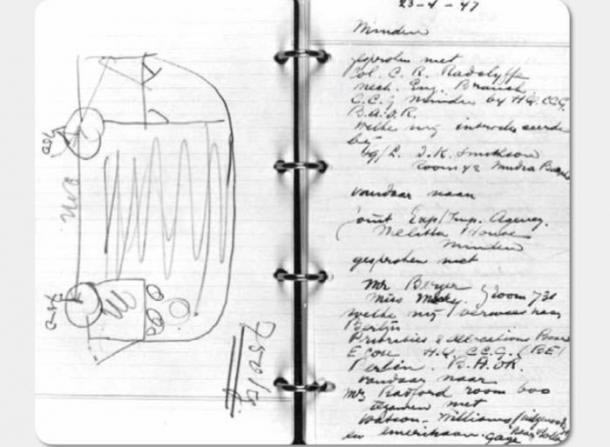 750
750
750 kg
23-4-47
Minden
gesproken met
Col. C. R. Radclyffe
Mech. Eng. Branch
C.C.G Minden by HQ. CCG.
B.A.O.R.
welke mij introduceerde
bij
J.K. Smithson
Room
vandaar naar
Joint Exp/Imp. Agency.
Melitta House
Minden
gesproken met
Mr Berger
Miss Room 731
welke mij overwees naar
Berlijn
Priorities & Allocations Board
Econ H.Q. C.C.G. (BE)
Berlin. B.A.O.R.
vandaar naar
Mr Radford room 600
samen met
Watson - Williams
en Amerikaan. Gage